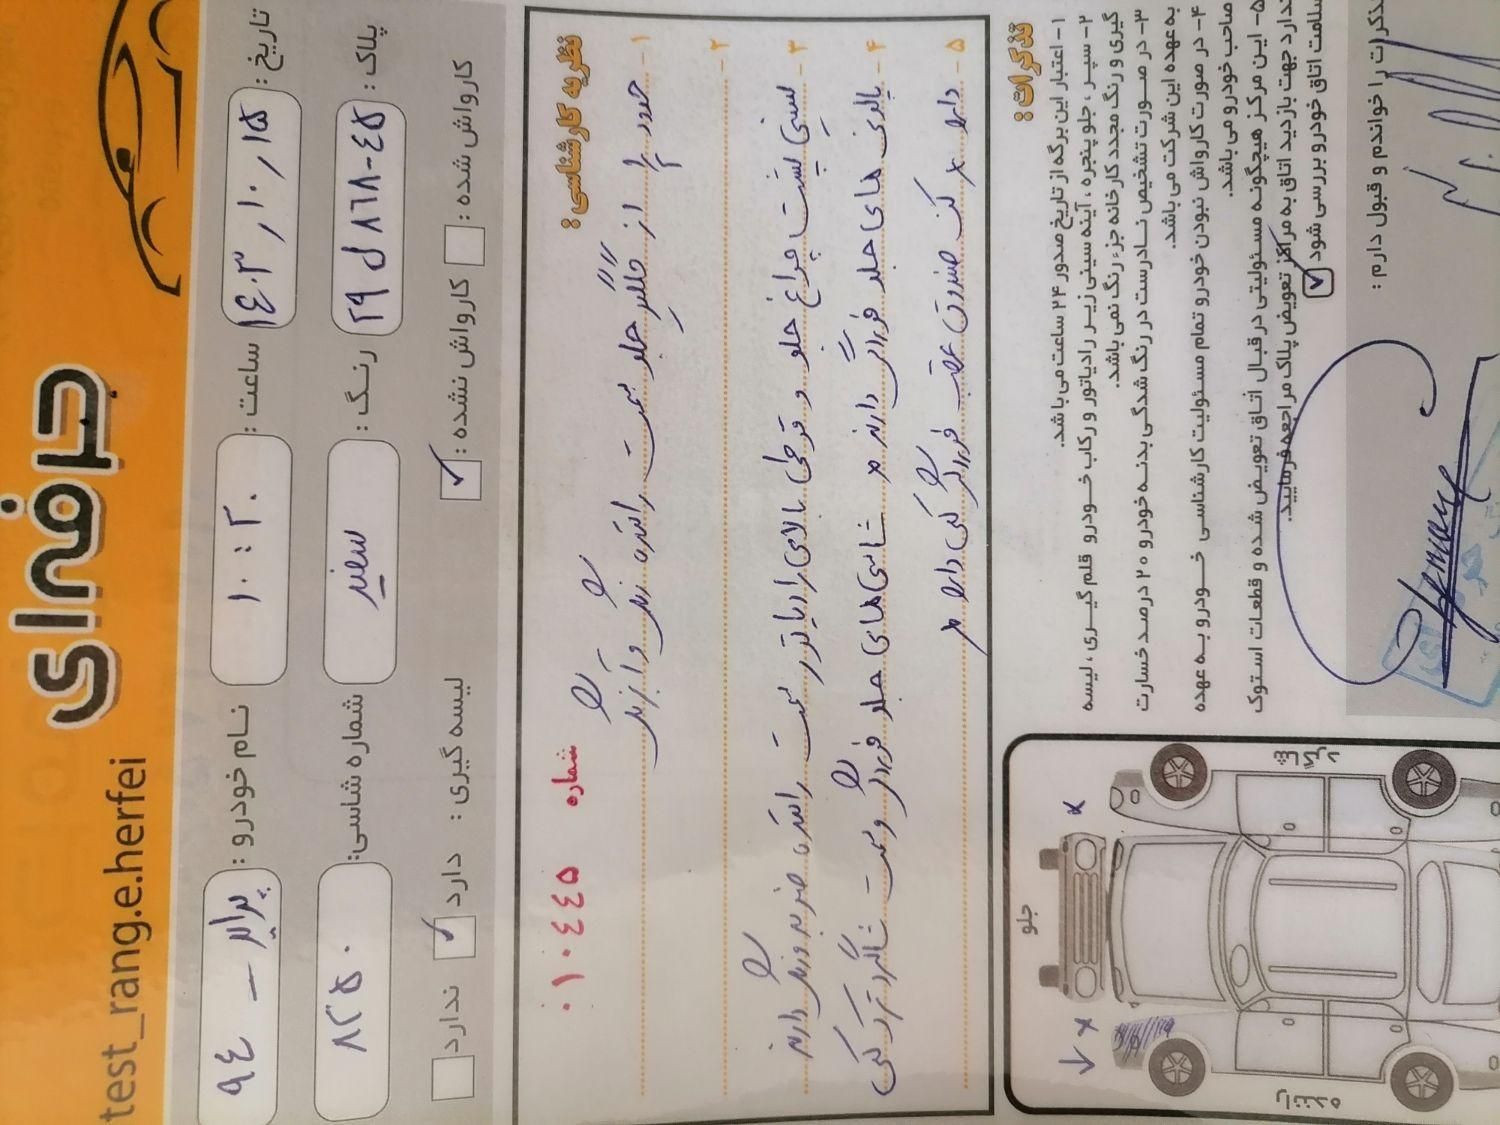 حرفه‌ای
test_rang.e.herfei
تاریخ : ۱۴۰۳ / ۱۰ / ۱۵
ساعت : ۱۰:۲۰
نام خودرو : پراید - ۹۴
پلاک : ۲۹ ل ۸۶۸-۴۵
رنگ : سفید
شماره شاسی: ۸۲۵۰
کارواش شده :
کارواش نشده :
لیسه گیری :
دارد
ندارد
شماره ۰۱۰۴۴۵
نظریه کارشناسی :
۱- حدود از گلگیر جلو سمت راننده رنگ و
۲-
۳- سینی پشت چراغ جلو و قوطی بالای رادیاتور سمت راننده ضربه و رنگ دارند
۴- پالونی های جلو دارند شاسی های جلو وسمت شاگرد ترک
۵- دارد کف صندوق عقب دارد
تذکرات :
۱- اعتبار این برگه از تاریخ صدور ۲۴ ساعت می باشد.
۲- سپر ، جلو پنجره ، آینه سینی زیر رادیاتور و رکاب خودرو قلم گیری ، لیسه
گیری و رنگ مجدد کارخانه جزء رنگ نمی باشد.
۳- در صورت تشخیص نادرست در رنگ شدگی بدنه خودرو ۲۰ درصد خسارت
به عهده این شرکت می باشد.
۴- در صورت کارواش نبودن خودرو تمام مسئولیت کارشناسی خودرو به عهده
صاحب خودرو می باشد.
۵- این مرکز هیچگونه مسئولیتی در قبال اتاق تعویض شده و قطعات استوک
ندارد جهت بازدید اتاق به مراکز تعویض پلاک مراجعه فرمایید.
سلامت اتاق خودرو بررسی شود
تذکرات را خواندم و قبول دارم :
جلو
شاگرد
راننده